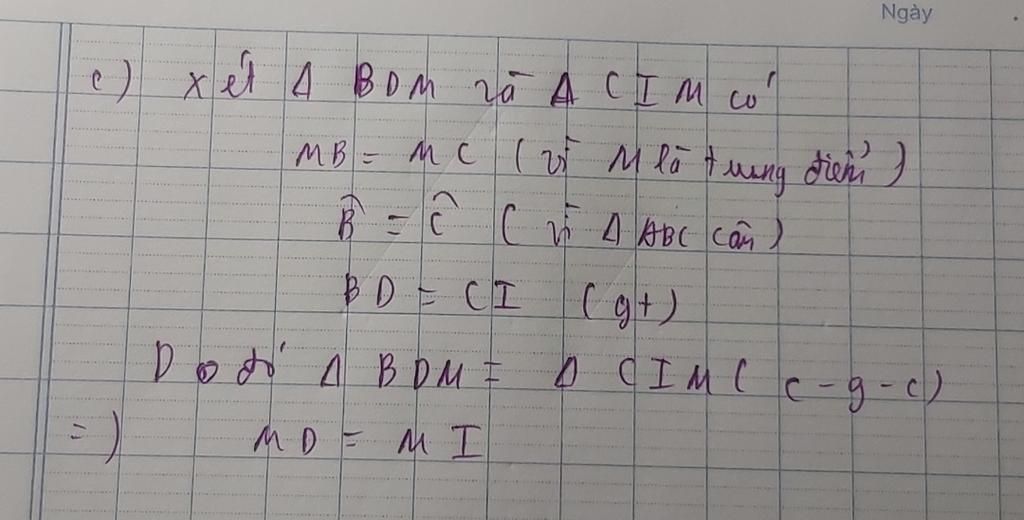 Ngày
c) xét Δ BDM và Δ CIM có
MB = MC (vì M là trung điểm)
B̂ = Ĉ (vì Δ ABC cân)
BD = CI (gt)
Do đó Δ BDM = Δ CIM (c-g-c)
=) MD = MI